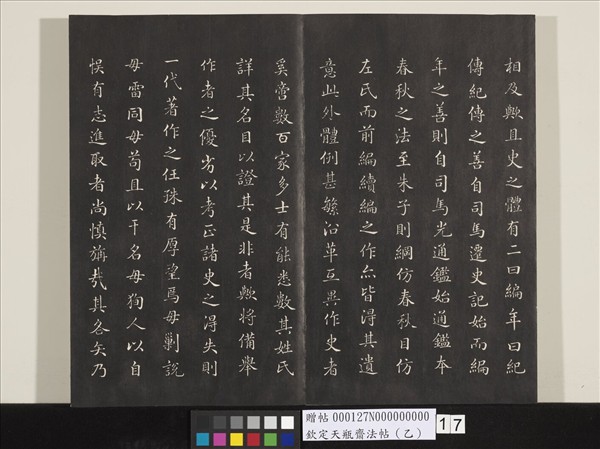 相及歟且史之體有二曰編年曰紀
傳紀傳之善自司馬遷史記始而編
年之善則自司馬光通鑑始通鑑本
春秋之法至朱子則綱仿春秋目仿
左氏而前編續編之作亦皆得其遺
意此外體例甚緐沿革互異作史者
奚啻數百家多士有能悉數其姓氏
詳其名目以證其是非者歟將備舉
作者之優劣以考正諸史之得失則
一代著作之任殊有厚望焉毋剿說
毋雷同毋苟且以干名毋狥人以自
悮有志進取者尚慎旃哉其各矢乃
贈帖 000127N000000000
欽定天瓶齋法帖（乙）
17